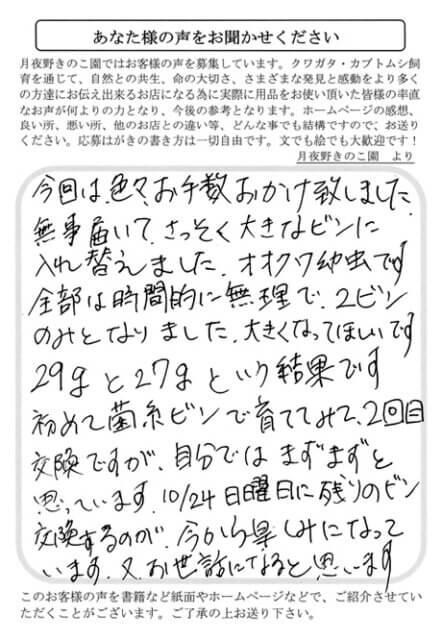 あなた様の声をお聞かせください
月夜野きのこ園ではお客様の声を募集しています。クワガタ・カブトムシ飼
育を通じて、自然との共生、命の大切さ、さまざまな発見と感動をより多く
の方達にお伝え出来るお店になる為に実際に用品をお使い頂いた皆様の率直
なお声が何よりの力となり、今後の参考となります。ホームページの感想、
良い所、悪い所、他のお店との違い等、どんな事でも結構ですので、お送り
ください。応募はがきの書き方は一切自由です。文でも絵でも大歓迎です！
月夜野きのこ園 より
今回は、色々、お手数おかけ致しました、
無事届いて、さっそく大きなビンに
入れ替えました、オオクワ幼虫です
全部は時間的に無理で、2ビン
のみとなりました、大きくなってほしいです
29gと27gという結果です
初めて菌糸ビンで育ててみて、2回目
交換ですが、自分では まずまずと
思っています、10/24 日曜日に残りのビン
交換するのが、今から楽しみになって
います、又、お世話になると思います
このお客様の声を書籍など紙面やホームページなどで、ご紹介させてい
ただくことがございます。ご了承の上お送り下さい。